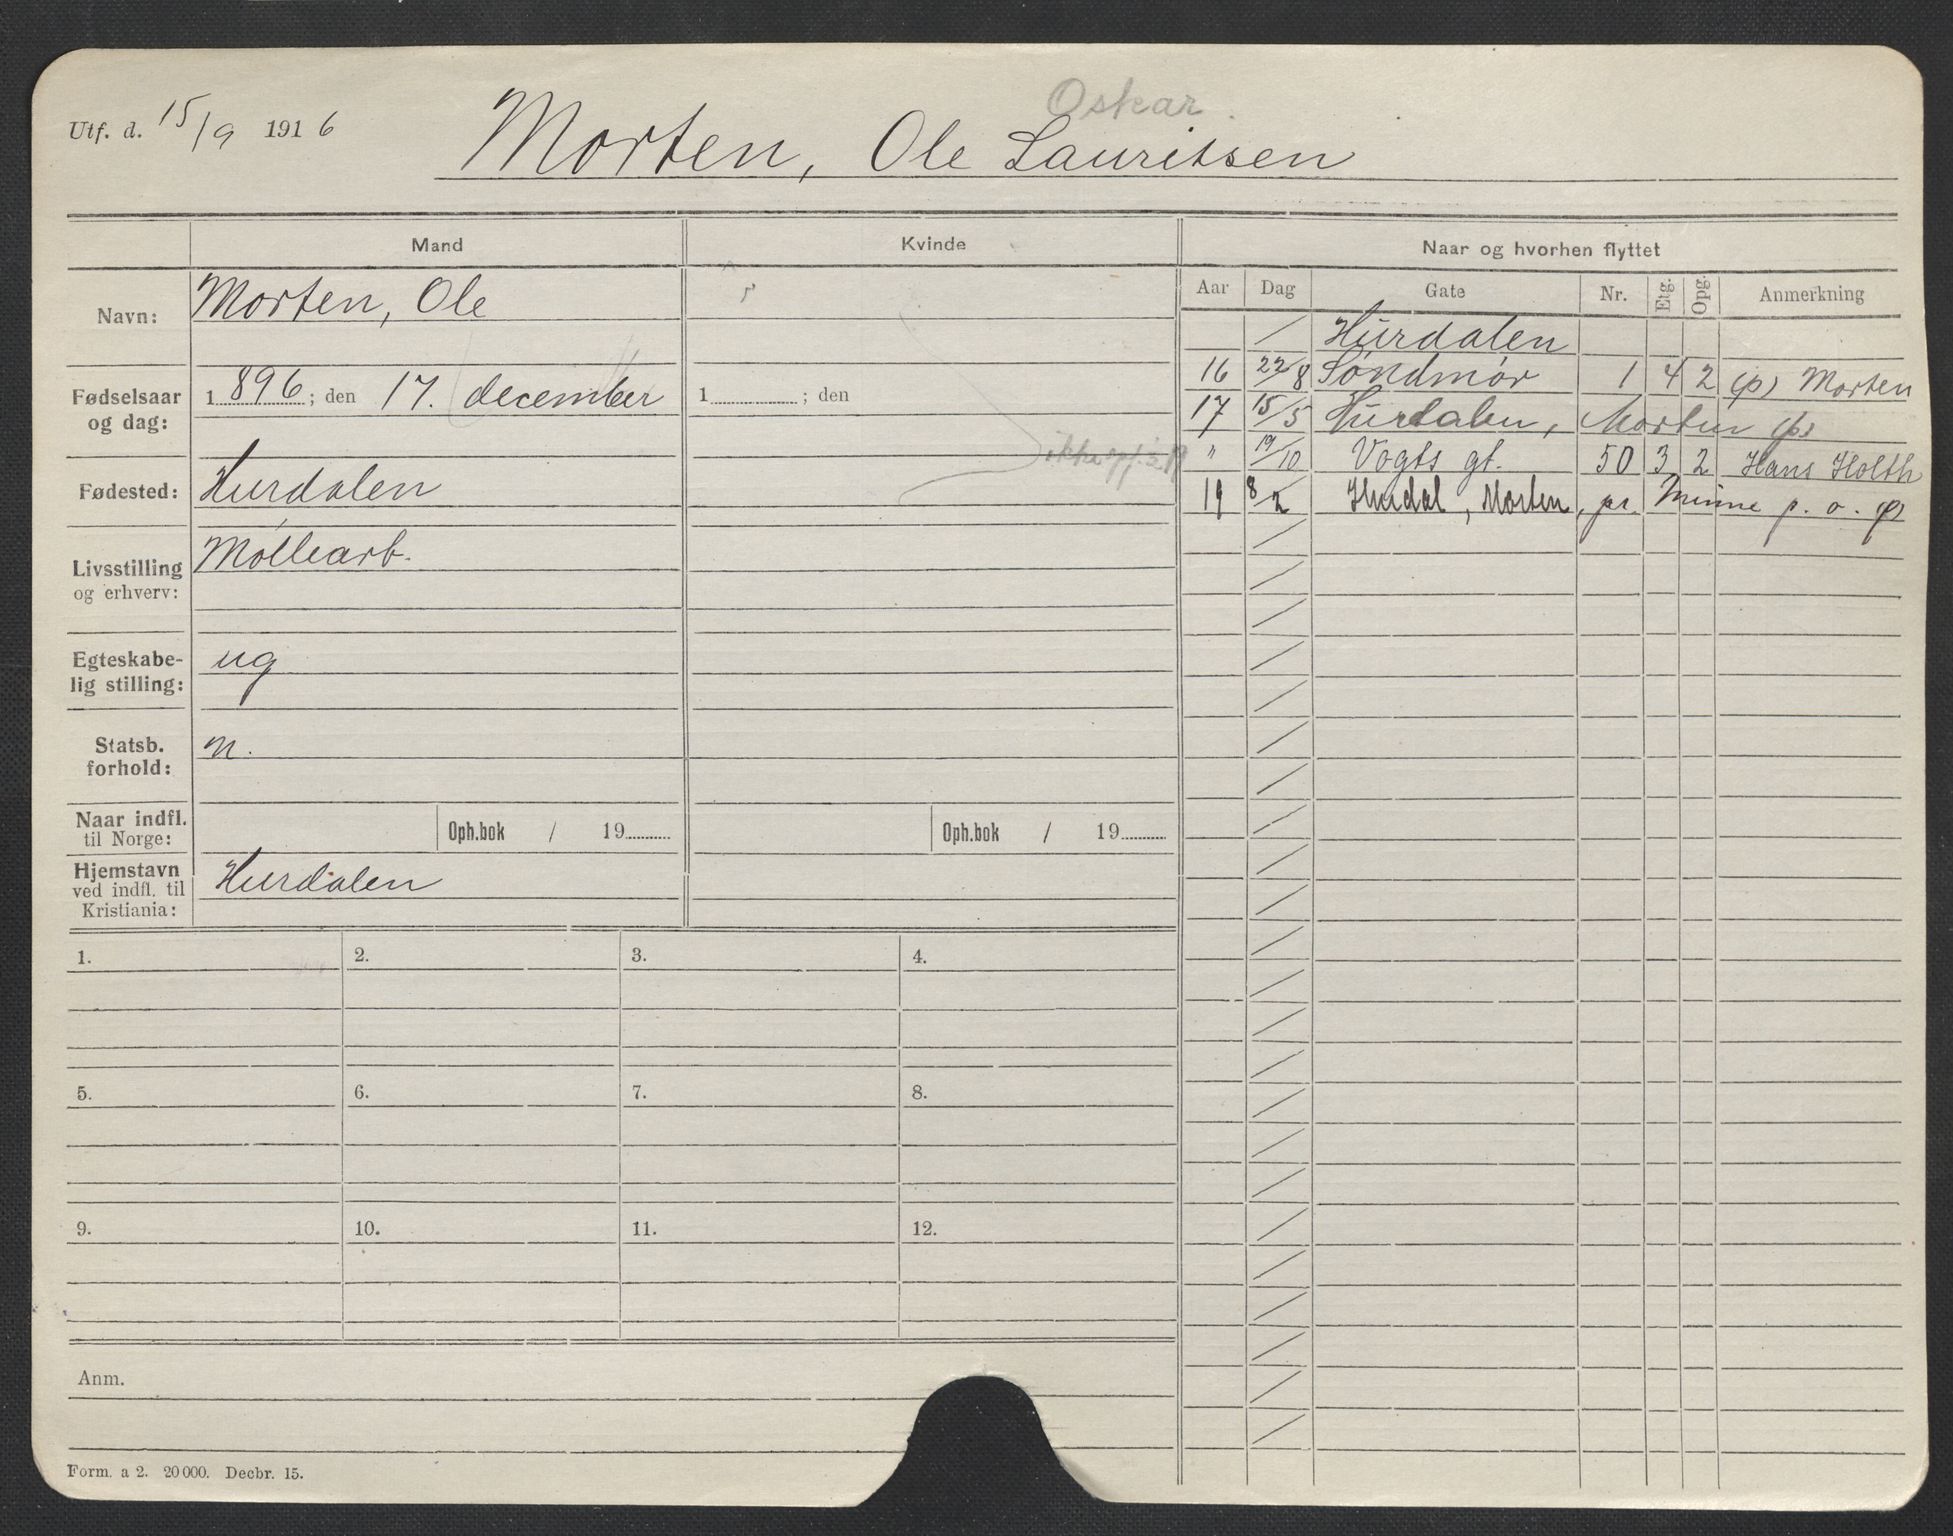 Oskar.
Utf. d. 15/9 1916 Morten, Ole Lauritsen
Mand Kvinde Naar og hvorhen flyttet
Aar Dag Gate Nr. Etg. Opg. Anmerkning
Navn: Morten, Ole
Fødselsaar og dag: 1896; den 17. december 1 ; den
Fødested: Hurdalen
Livsstilling og erhverv: Møllearb.
Egteskabelig stilling: ug
Statsb. forhold: n.
Naar indfl. til Norge: Oph.bok / 19 Oph.bok / 19
Hjemstavn ved indfl. til Kristiania: Hurdalen
/ Hurdalen
16 22/8 Søndmør 1 4 2 (p) Morten
17 15/5 Hurdalen, Morten (p)
" 19/10 Vogts gt. 50 3 2 Hans Holth
19 8/2 Hurdal, Morten, pr. Minne p. o. (p)
1. 2. 3. 4.
5. 6. 7. 8.
9. 10. 11. 12.
Anm.
Form. a 2. 20000. Decbr. 15.